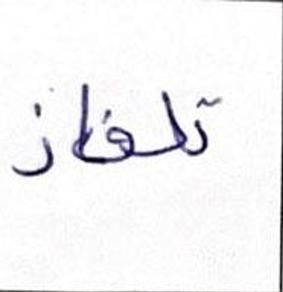 تلفاز